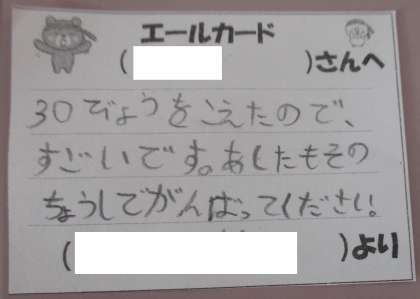 エールカード
( )さんへ
30びょうをこえたので、
すごいです。あしたもその
ちょうしでがんばってください。
( )より